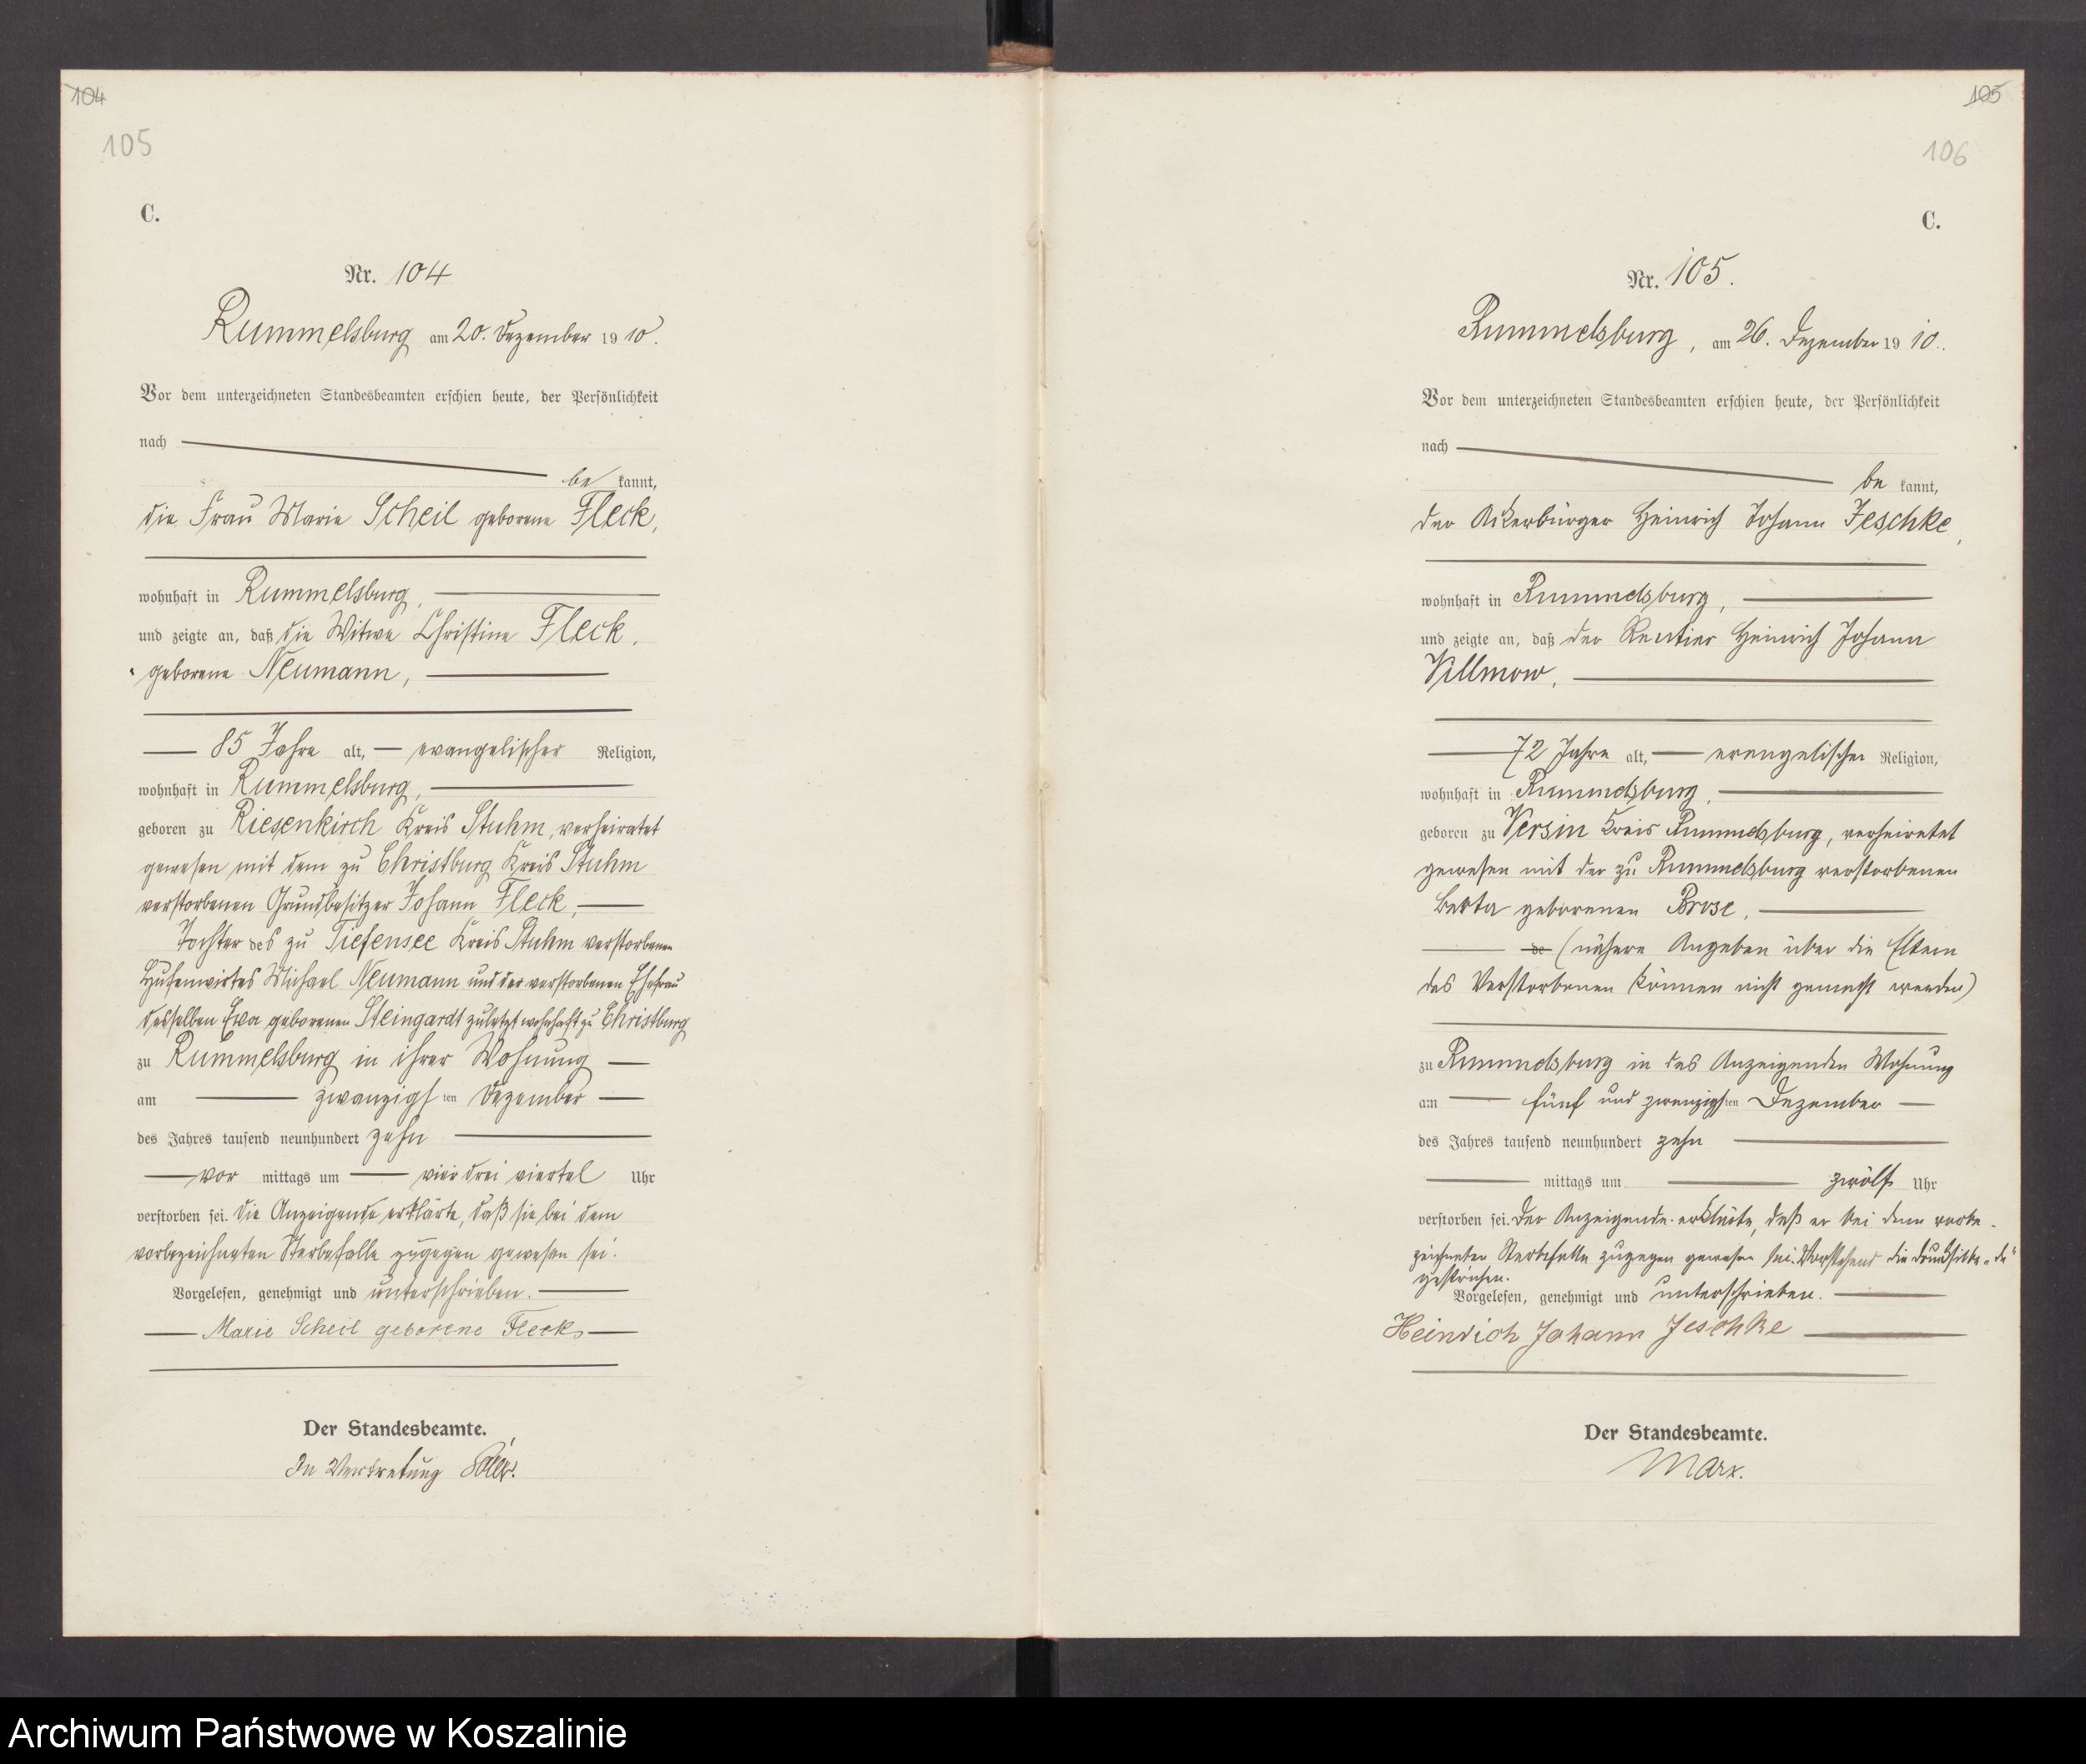 104
105
C.
Nr. 104
Rummelsburg am 20. Dezember 1910.
Vor dem unterzeichneten Standesbeamten erschien heute, der Persönlichkeit
nach
be kannt,
die Frau Marie Scheil geborene Fleck,
wohnhaft in Rummelsburg,
und zeigte an, daß die Witwe Christine Fleck,
geborene Neumann,
85 Jahre alt, evangelischer Religion,
wohnhaft in Rummelsburg,
geboren zu Riesenkirch Kreis Stuhm, verheiratet
gewesen mit dem zu Christburg Kreis Stuhm
verstorbenen Grundbesitzer Johann Fleck,
Tochter des zu Tiefensee Kreis Stuhm verstorbenen
Hufenwirtes Michael Neumann und der verstorbenen Ehefrau
desselben Ewa geborenen Steingardt zuletzt wohnhaft zu Christburg
zu Rummelsburg in ihrer Wohnung
am zwanzigsten Dezember
des Jahres tausend neunhundert zehn
vor mittags um vier drei viertel Uhr
verstorben sei. Die Anzeigende erklärte, daß sie bei dem
vorbezeichneten Sterbefalle zugegen gewesen sei.
Vorgelesen, genehmigt und unterschrieben.
Marie Scheil geborene Fleck
Der Standesbeamte.
In Vertretung
105
106
C.
Nr. 105.
Rummelsburg, am 26. Dezember 1910.
Vor dem unterzeichneten Standesbeamten erschien heute, der Persönlichkeit
nach
be kannt,
der Ackerbürger Heinrich Johann Jeschke,
wohnhaft in Rummelsburg,
und zeigte an, daß der Rentier Heinrich Johann
Villmow,
72 Jahre alt, evangelischer Religion,
wohnhaft in Rummelsburg,
geboren zu Versin Kreis Rummelsburg, verheiratet
gewesen mit der zu Rummelsburg verstorbenen
Berta geborenen Brose,
de (nähere Angaben über die Eltern
des Verstorbenen können nicht gemacht werden)
zu Rummelsburg in des Anzeigenden Wohnung
am fünf und zwanzigsten Dezember
des Jahres tausend neunhundert zehn
mittags um zwölf Uhr
verstorben sei. Der Anzeigende erklärte, daß er bei dem vorbe-
zeichneten Sterbefalle zugegen gewesen sei. Vorstehend die Drucksilbe „de“
gestrichen.
Vorgelesen, genehmigt und unterschrieben.
Heinrich Johann Jeschke
Der Standesbeamte.
Marx.
Archiwum Państwowe w Koszalinie